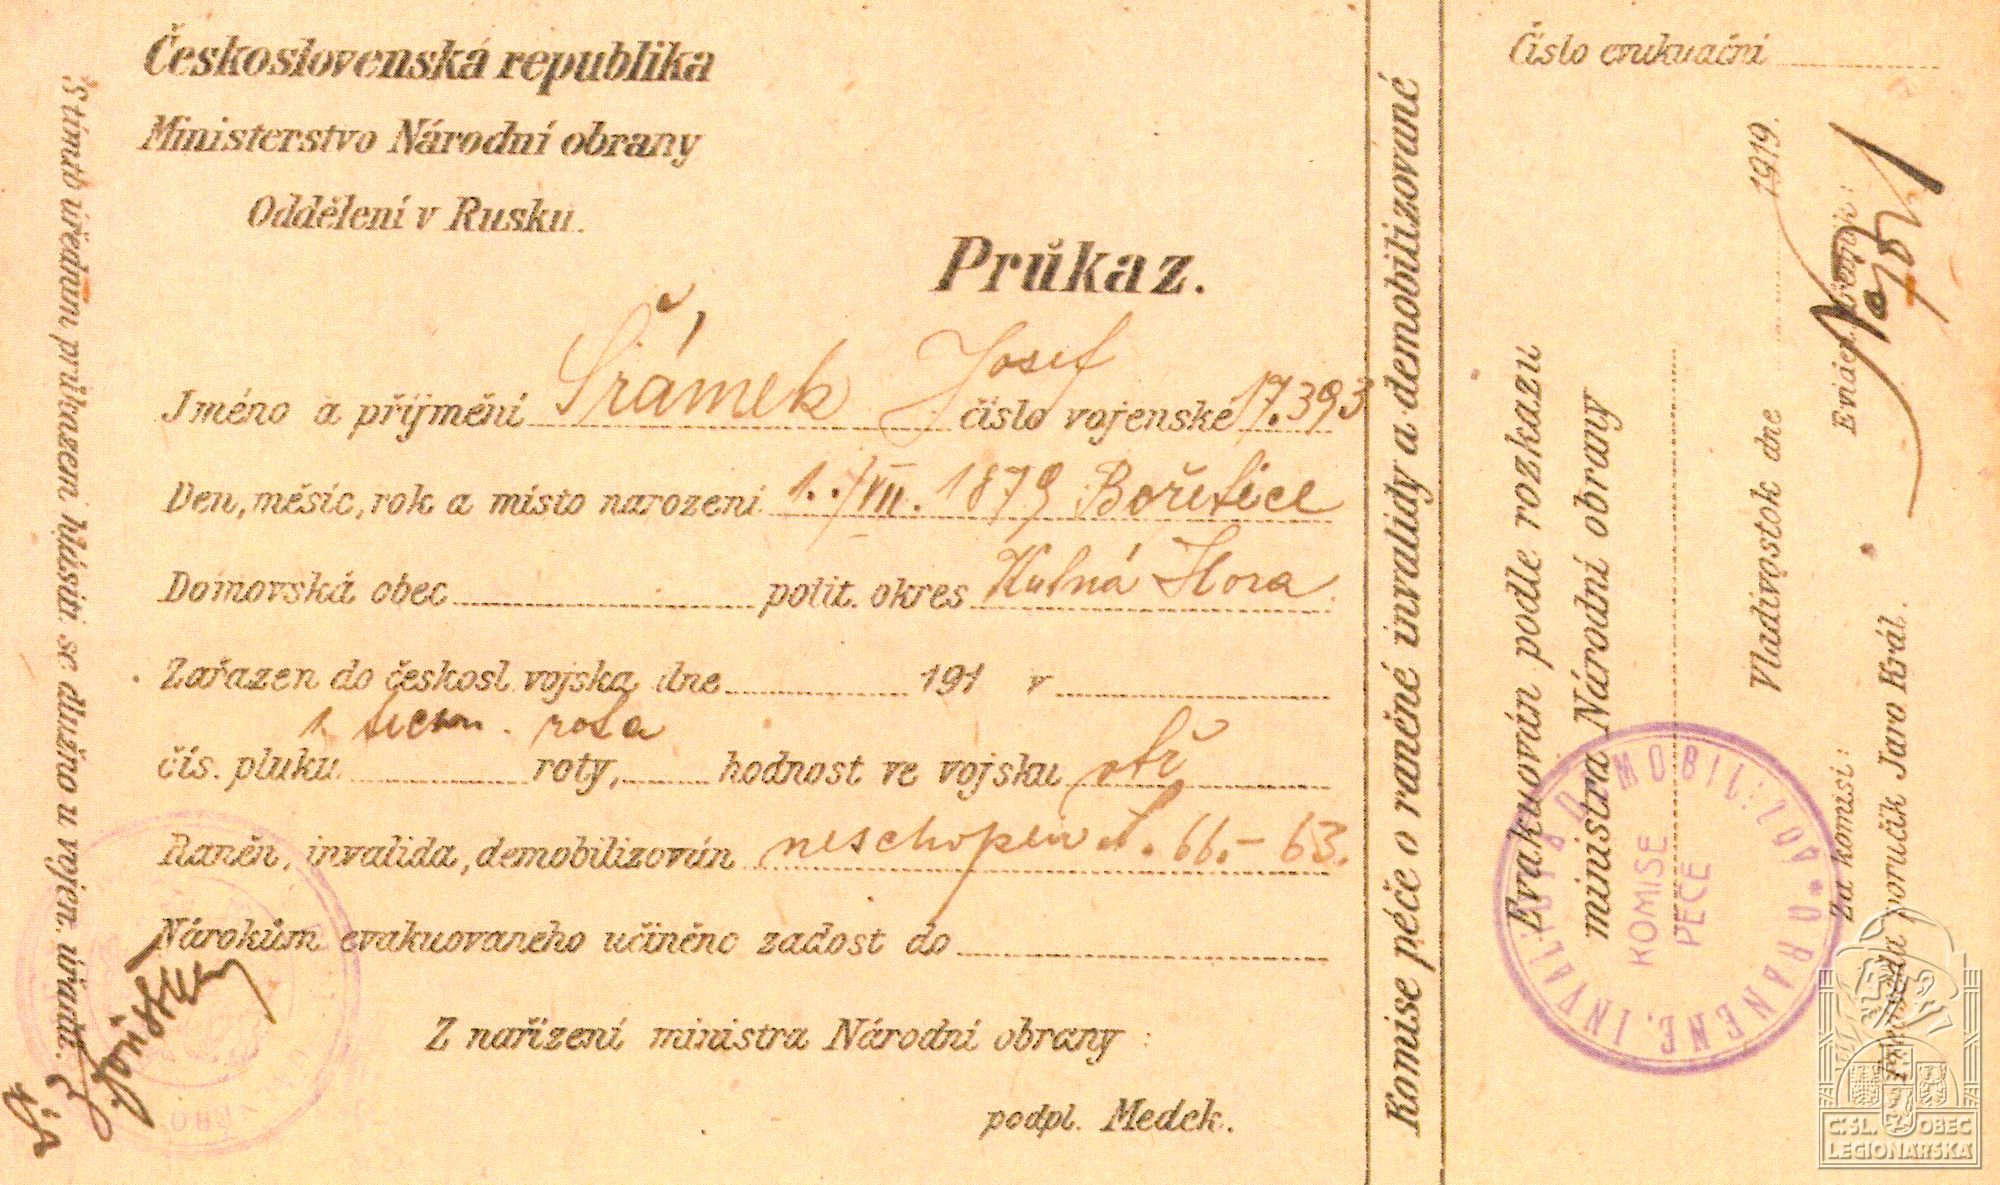 Československá republika
Ministerstvo Národní obrany
Oddělení v Rusku.
Průkaz.
Jméno a příjmění Šrámek Josef číslo vojenské 17.393
Den, měsíc, rok a místo narození 1. VII. 1879 Bořetice
Domovská obec polit. okres Kutná Hora
Zařazen do českosl. vojska dne 191 v
1. techn. rota
čís. pluku roty, hodnost ve vojsku stř
Raněn, invalida, demobilizován neschopen 66.-63.
Nárokům evakuovaného učiněno zadost do
Z nařízení ministra Národní obrany:
podpl. Medek.
S tímto úředním průkazem hlásiti se dlužno u vojen. úřadů.
Komise péče o raněné invalidy a demobilizované
Číslo evakuační
Evakuován podle rozkazu
ministra Národní obrany
Vladivostok dne 1919.
Za komisi:
poručík Jaro Král.
DEMOBILIZOV. A RANĚNÉ, INVALIDY
KOMISE
PÉČE
Č.SL. OBEC
LEGIONÁŘSKÁ